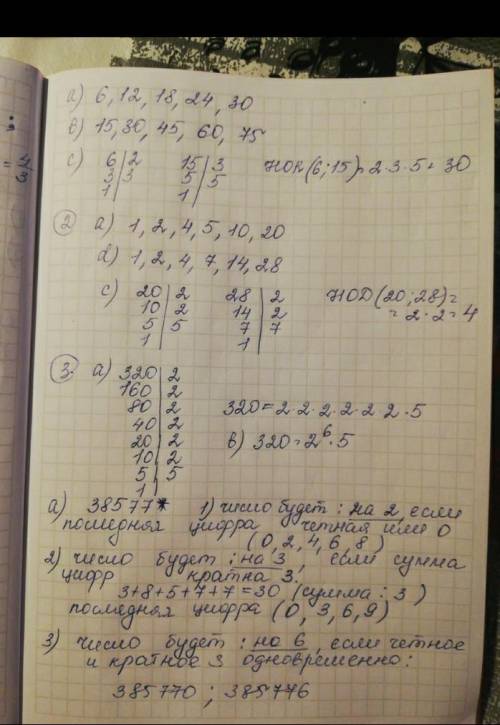 а) 6, 12, 18, 24, 30
в) 15, 30, 45, 60, 75
с) 6|2 15|3 НОК(6;15)=2·3·5=30
3|3 5|5
1| 1|
2 а) 1, 2, 4, 5, 10, 20
d) 1, 2, 4, 7, 14, 28
с) 20|2 28|2 НОД(20;28)=
10|2 14|2 = 2·2=4
5|5 7|7
1| 1|
3. а) 320|2
160|2
80|2 320=2·2·2·2·2·2·5
40|2
20|2 в) 320=2⁶·5
10|2
5|5
1|
а) 38577* 1) число будет : на 2, если
последняя цифра четная или 0
(0, 2, 4, 6, 8)
2) число будет : на 3, если сумма
цифр кратна 3.
3+8+5+7+7=30 (сумма : 3)
последняя цифра (0, 3, 6, 9)
3) число будет : на 6, если четное
и кратное 3 одновременно:
385770 ; 385776
= 4/3